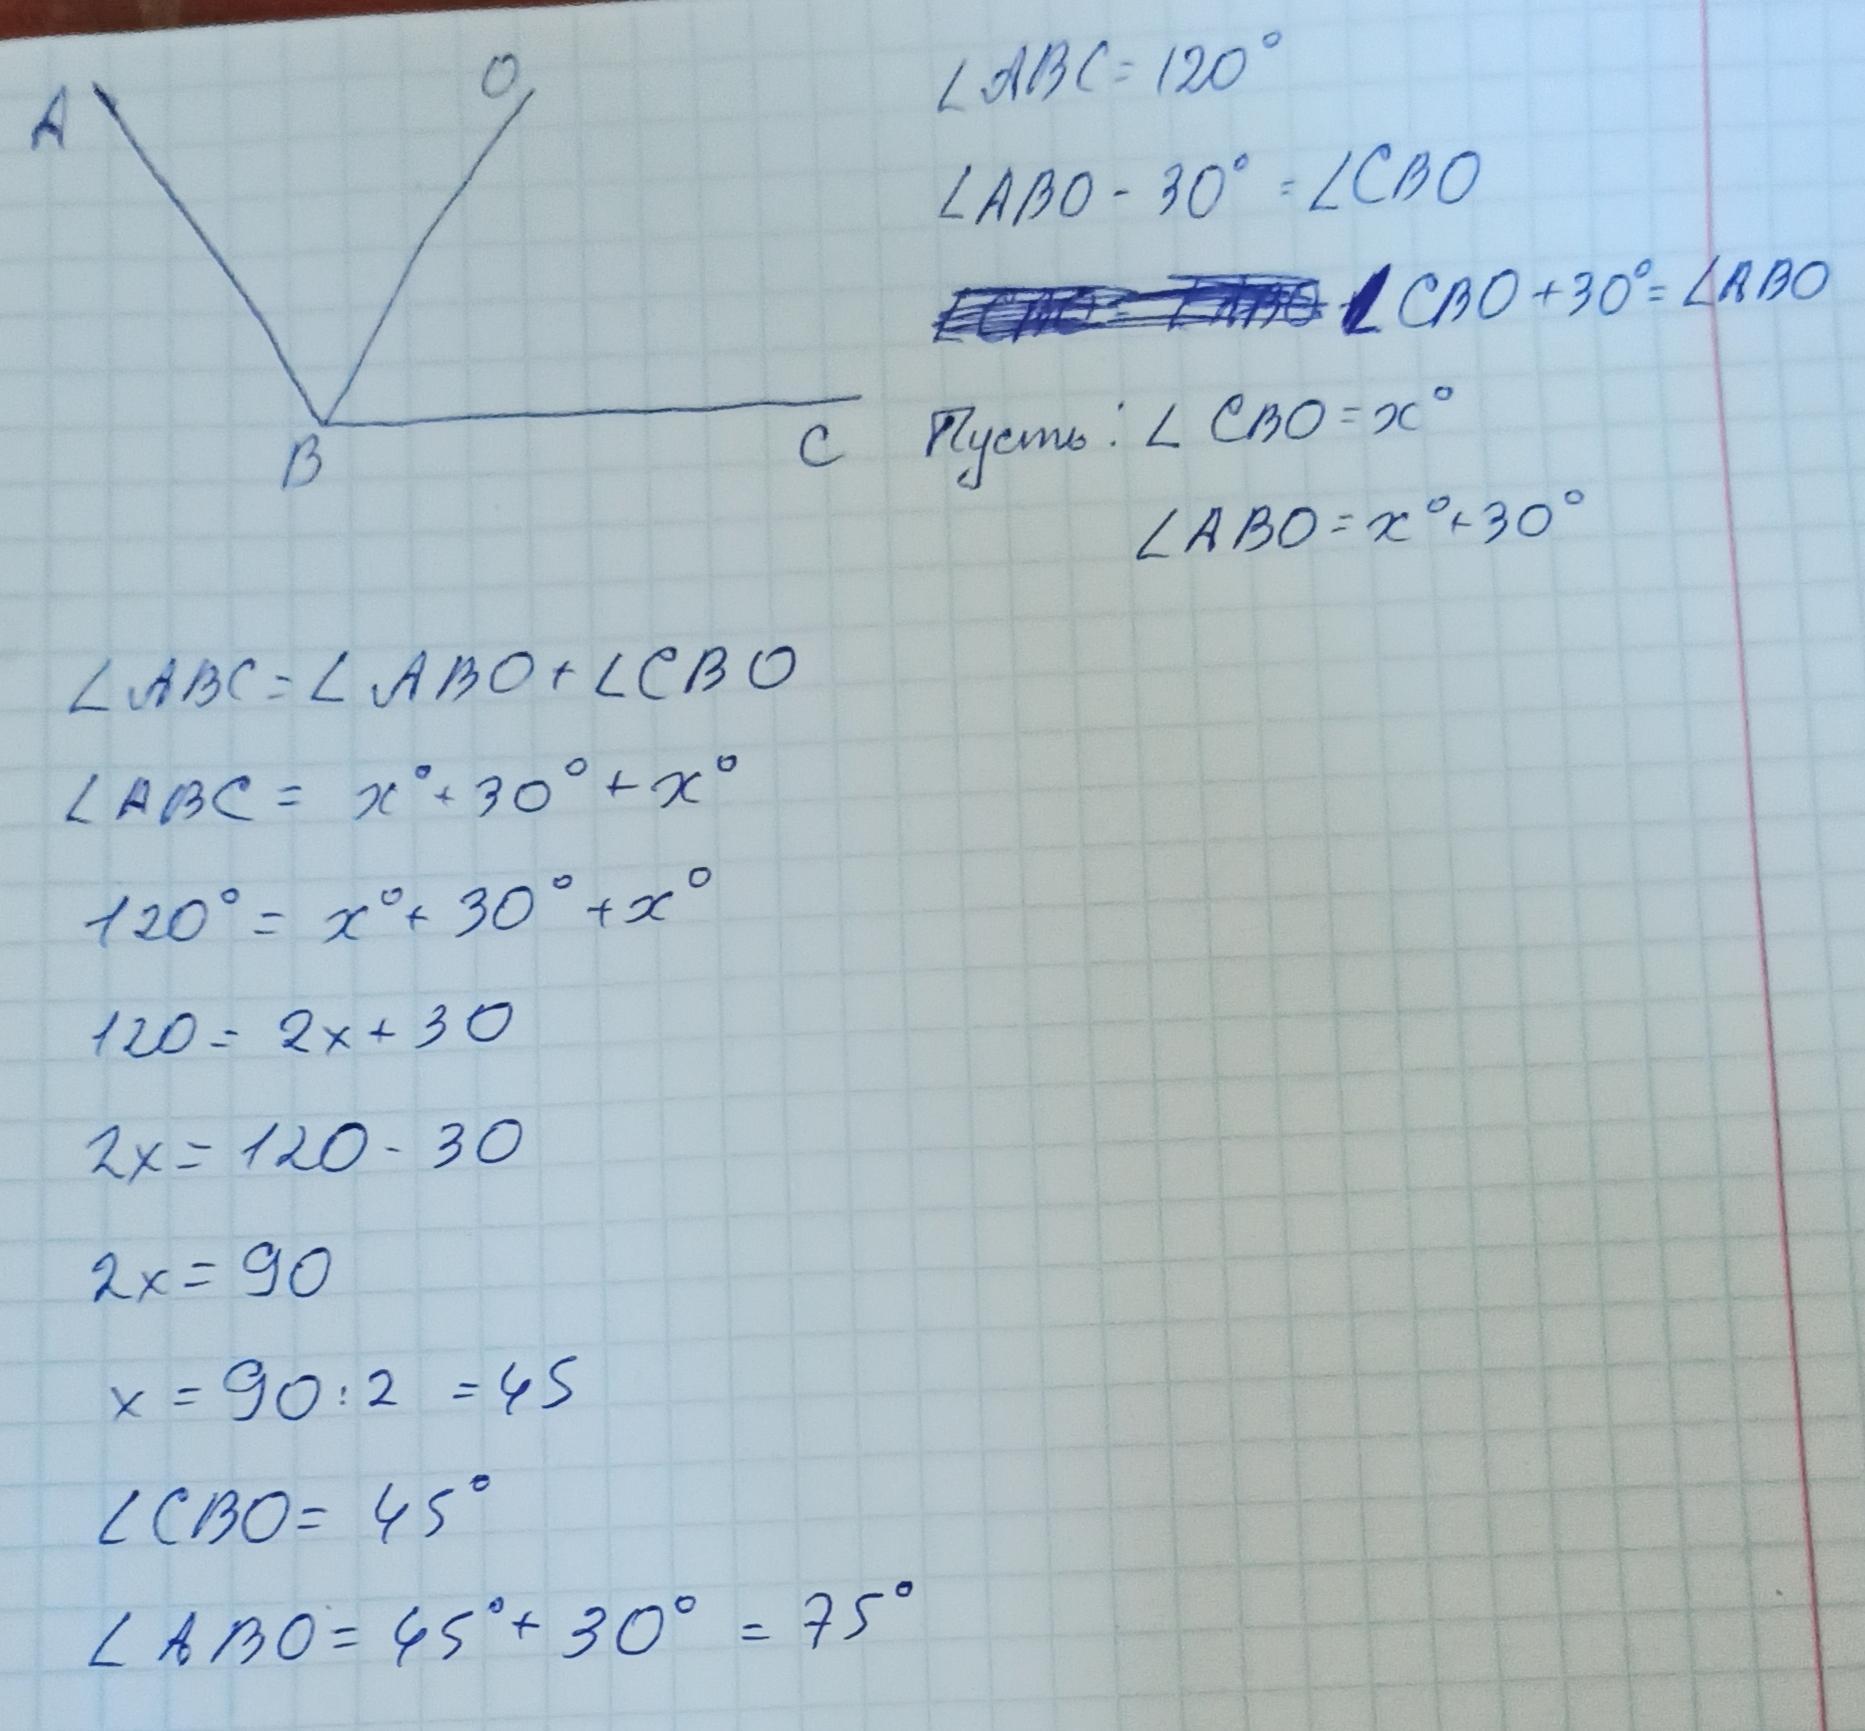 A
O
B
C
∠ABC = 120°
∠ABO - 30° = ∠CBO
∠CBO + 30° = ∠ABO
Пусть: ∠CBO = x°
∠ABO = x° + 30°
∠ABC = ∠ABO + ∠CBO
∠ABC = x° + 30° + x°
120° = x° + 30° + x°
120 = 2x + 30
2x = 120 - 30
2x = 90
x = 90 : 2 = 45
∠CBO = 45°
∠ABO = 45° + 30° = 75°